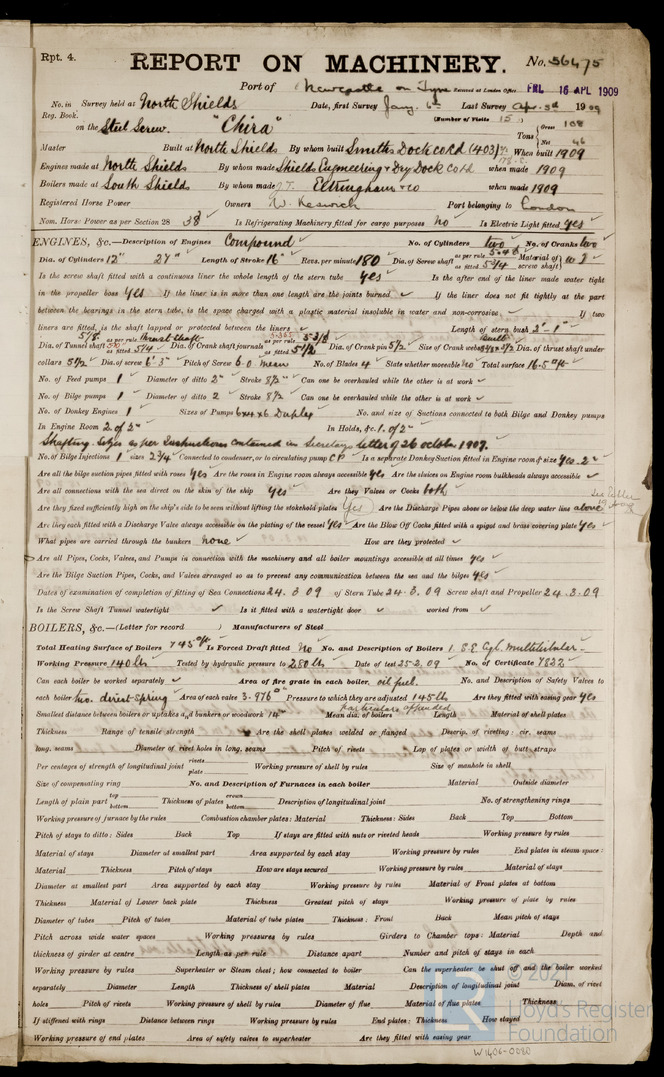 Rpt. 4.
REPORT ON MACHINERY. No. 56475
Port of Newcastle on Tyne Received at London Office FRI. 16 APL 1909
No. in Survey held at North Shields Date, first Survey Jany. 6th Last Survey Apr. 3rd 1909
Reg. Book. (Number of Visits 15)
on the Steel Screw. "Chira" Tons Gross 108 Net 46
Master Built at North Shields By whom built Smiths Dock Co Ld (403) When built 1909
Engines made at North Shields By whom made Shields Engineering & Dry Dock Co Ld when made 1909
Boilers made at South Shields By whom made J.T. Eltringham & Co when made 1909
Registered Horse Power Owners W. Keswick Port belonging to London
Nom. Horse Power as per Section 28 38 Is Refrigerating Machinery fitted for cargo purposes No Is Electric Light fitted yes
ENGINES, &c.—Description of Engines Compound No. of Cylinders two No. of Cranks two
Dia. of Cylinders 12" 27" Length of Stroke 16" Revs. per minute 180 Dia. of Screw shaft as per rule 5.48 as fitted 5 3/4 Material of screw shaft
Is the screw shaft fitted with a continuous liner the whole length of the stern tube yes Is the after end of the liner made water tight
in the propeller boss yes If the liner is in more than one length are the joints burned If the liner does not fit tightly at the part
between the bearings in the stern tube, is the space charged with a plastic material insoluble in water and non-corrosive If two
liners are fitted, is the shaft lapped or protected between the liners Length of stern bush 2'-1"
Dia. of Tunnel shaft as per rule as fitted 5 1/4 Dia. of Crank shaft journals as per rule as fitted 5 1/2 Dia. of Crank pin 5 1/2 Size of Crank webs Dia. of thrust shaft under
collars 5 1/2 Dia. of screw 6'.3" Pitch of Screw 6.0 mean No. of Blades 4 State whether moveable no Total surface 16.5 □ft
No. of Feed pumps 1 Diameter of ditto 2" Stroke 8 1/2" Can one be overhauled while the other is at work
No. of Bilge pumps 1 Diameter of ditto 2 Stroke 8 1/2 Can one be overhauled while the other is at work
No. of Donkey Engines 1 Sizes of Pumps 6x4x6 Duplex No. and size of Suctions connected to both Bilge and Donkey pumps
In Engine Room 2 of 2" In Holds, &c. 1 of 2"
Shafting Sizes as per Instructions contained in Secretarys letter of 26 october 1907.
No. of Bilge Injections 1 sizes 2 3/4 Connected to condenser, or to circulating pump C.P. Is a separate Donkey Suction fitted in Engine room & size yes 2"
Are all the bilge suction pipes fitted with roses yes Are the roses in Engine room always accessible yes Are the sluices on Engine room bulkheads always accessible
Are all connections with the sea direct on the skin of the ship yes Are they Valves or Cocks both
Are they fixed sufficiently high on the ship's side to be seen without lifting the stokehold plates Yes Are the Discharge Pipes above or below the deep water line above
Are they each fitted with a Discharge Valve always accessible on the plating of the vessel yes Are the Blow Off Cocks fitted with a spigot and brass covering plate yes
What pipes are carried through the bunkers none How are they protected
Are all Pipes, Cocks, Valves, and Pumps in connection with the machinery and all boiler mountings accessible at all times yes
Are the Bilge Suction Pipes, Cocks, and Valves arranged so as to prevent any communication between the sea and the bilges yes
Dates of examination of completion of fitting of Sea Connections 24.3.09 of Stern Tube 24.3.09 Screw shaft and Propeller 24.3.09
Is the Screw Shaft Tunnel watertight Is it fitted with a watertight door worked from
BOILERS, &c.—(Letter for record ) Manufacturers of Steel
Total Heating Surface of Boilers 745 □ft Is Forced Draft fitted No No. and Description of Boilers 1 S.E. Cyl. Multitubular
Working Pressure 140 lbs Tested by hydraulic pressure to 280 lbs Date of test 25.2.09 No. of Certificate 7822
Can each boiler be worked separately Area of fire grate in each boiler oil fuel. No. and Description of Safety Valves to
each boiler two direct Spring Area of each valve 3.976 □" Pressure to which they are adjusted 145 lbs Are they fitted with easing gear yes
Smallest distance between boilers or uptakes and bunkers or woodwork 14" particulars appended Mean dia. of boilers Length Material of shell plates
Thickness Range of tensile strength Are the shell plates welded or flanged Descrip. of riveting: cir. seams
long. seams Diameter of rivet holes in long. seams Pitch of rivets Lap of plates or width of butt straps
Per centages of strength of longitudinal joint rivets plate Working pressure of shell by rules Size of manhole in shell
Size of compensating ring No. and Description of Furnaces in each boiler Material Outside diameter
Length of plain part top bottom Thickness of plates crown bottom Description of longitudinal joint No. of strengthening rings
Working pressure of furnace by the rules Combustion chamber plates: Material Thickness: Sides Back Top Bottom
Pitch of stays to ditto: Sides Back Top If stays are fitted with nuts or riveted heads Working pressure by rules
Material of stays Diameter at smallest part Area supported by each stay Working pressure by rules End plates in steam space:
Material Thickness Pitch of stays How are stays secured Working pressure by rules Material of stays
Diameter at smallest part Area supported by each stay Working pressure by rules Material of Front plates at bottom
Thickness Material of Lower back plate Thickness Greatest pitch of stays Working pressure of plate by rules
Diameter of tubes Pitch of tubes Material of tube plates Thickness: Front Back Mean pitch of stays
Pitch across wide water spaces Working pressures by rules Girders to Chamber tops: Material Depth and
thickness of girder at centre Length as per rule Distance apart Number and pitch of stays in each
Working pressure by rules Superheater or Steam chest; how connected to boiler Can the superheater be shut off and the boiler worked
separately Diameter Length Thickness of shell plates Material Description of longitudinal joint Diam. of rivet
holes Pitch of rivets Working pressure of shell by rules Diameter of flue Material of flue plates Thickness
If stiffened with rings Distance between rings Working pressure by rules End plates: Thickness How stayed
Working pressure of end plates Area of safety valves to superheater Are they fitted with easing gear
© 2021
Lloyd's Register
Foundation
W1406-0080